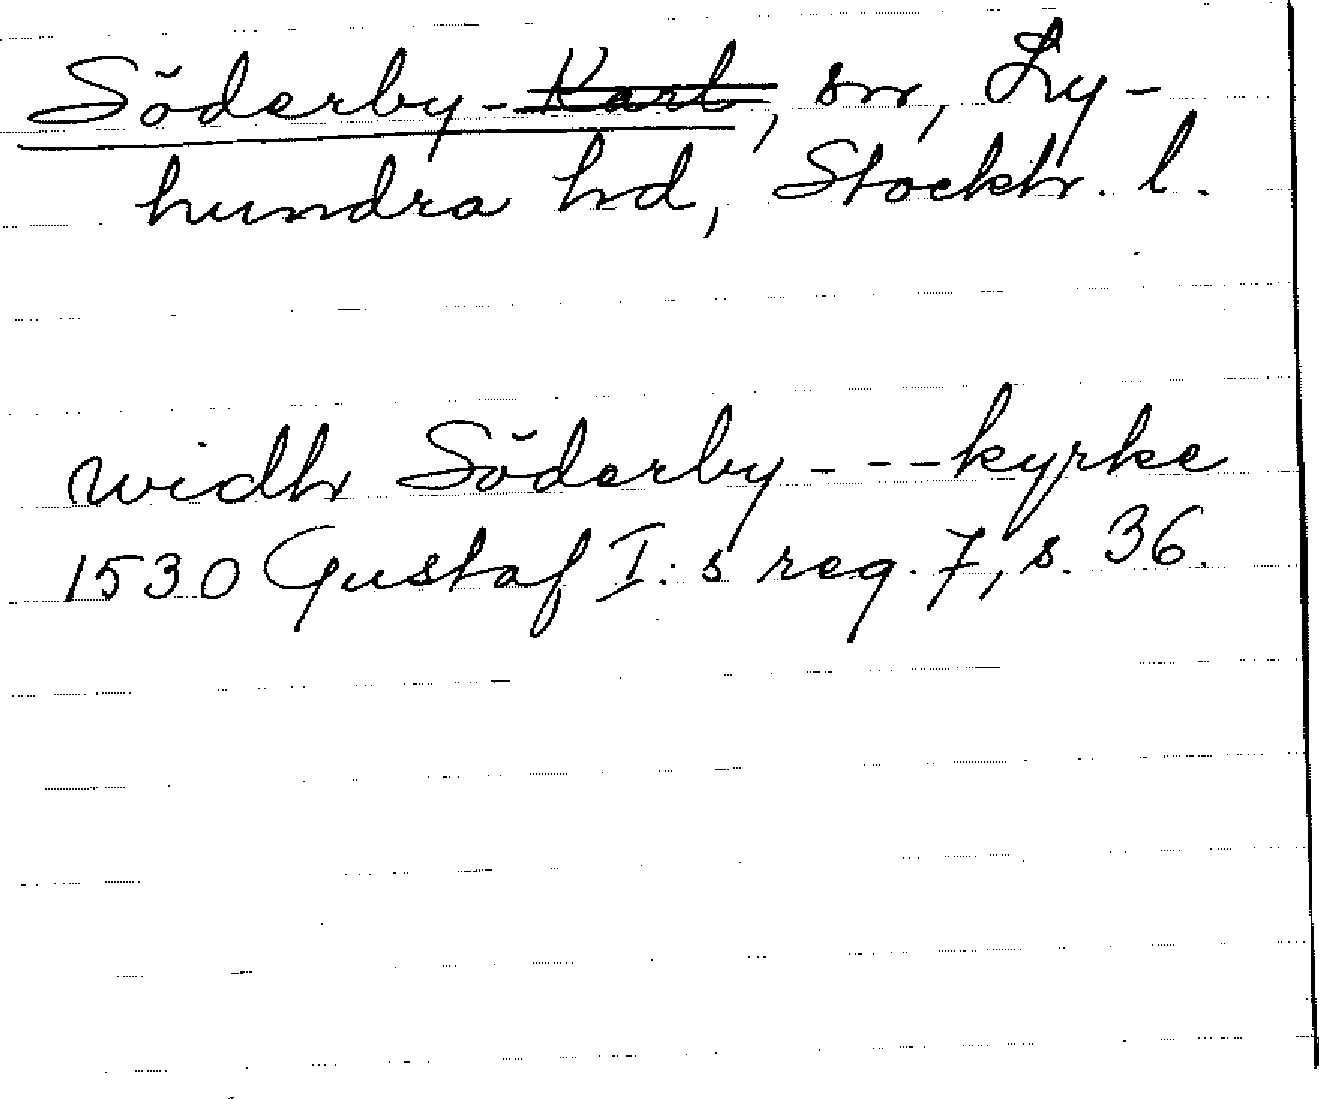 Söderby-Karl, sn, Ly-
hundra hd, Stockh. l.
widh Söderby - - - kyrke
1530 Gustaf I:s reg. 7, s. 36.